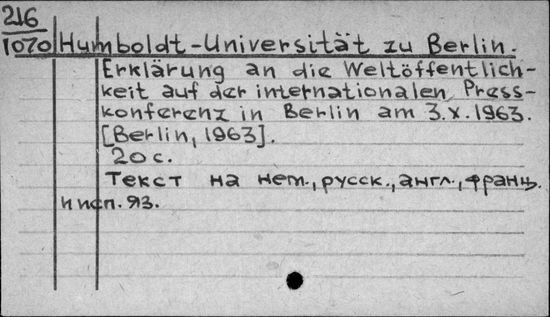 216
1070 Humboldt-Universität zu Berlin.
Erklärung an die Weltöffentlich-
keit auf der internationalen Press-
konferenz in Berlin am 3.X.1963.
[Berlin, 1963].
20 с.
Текст на нем., русск., англ., франц.
и исп. яз.